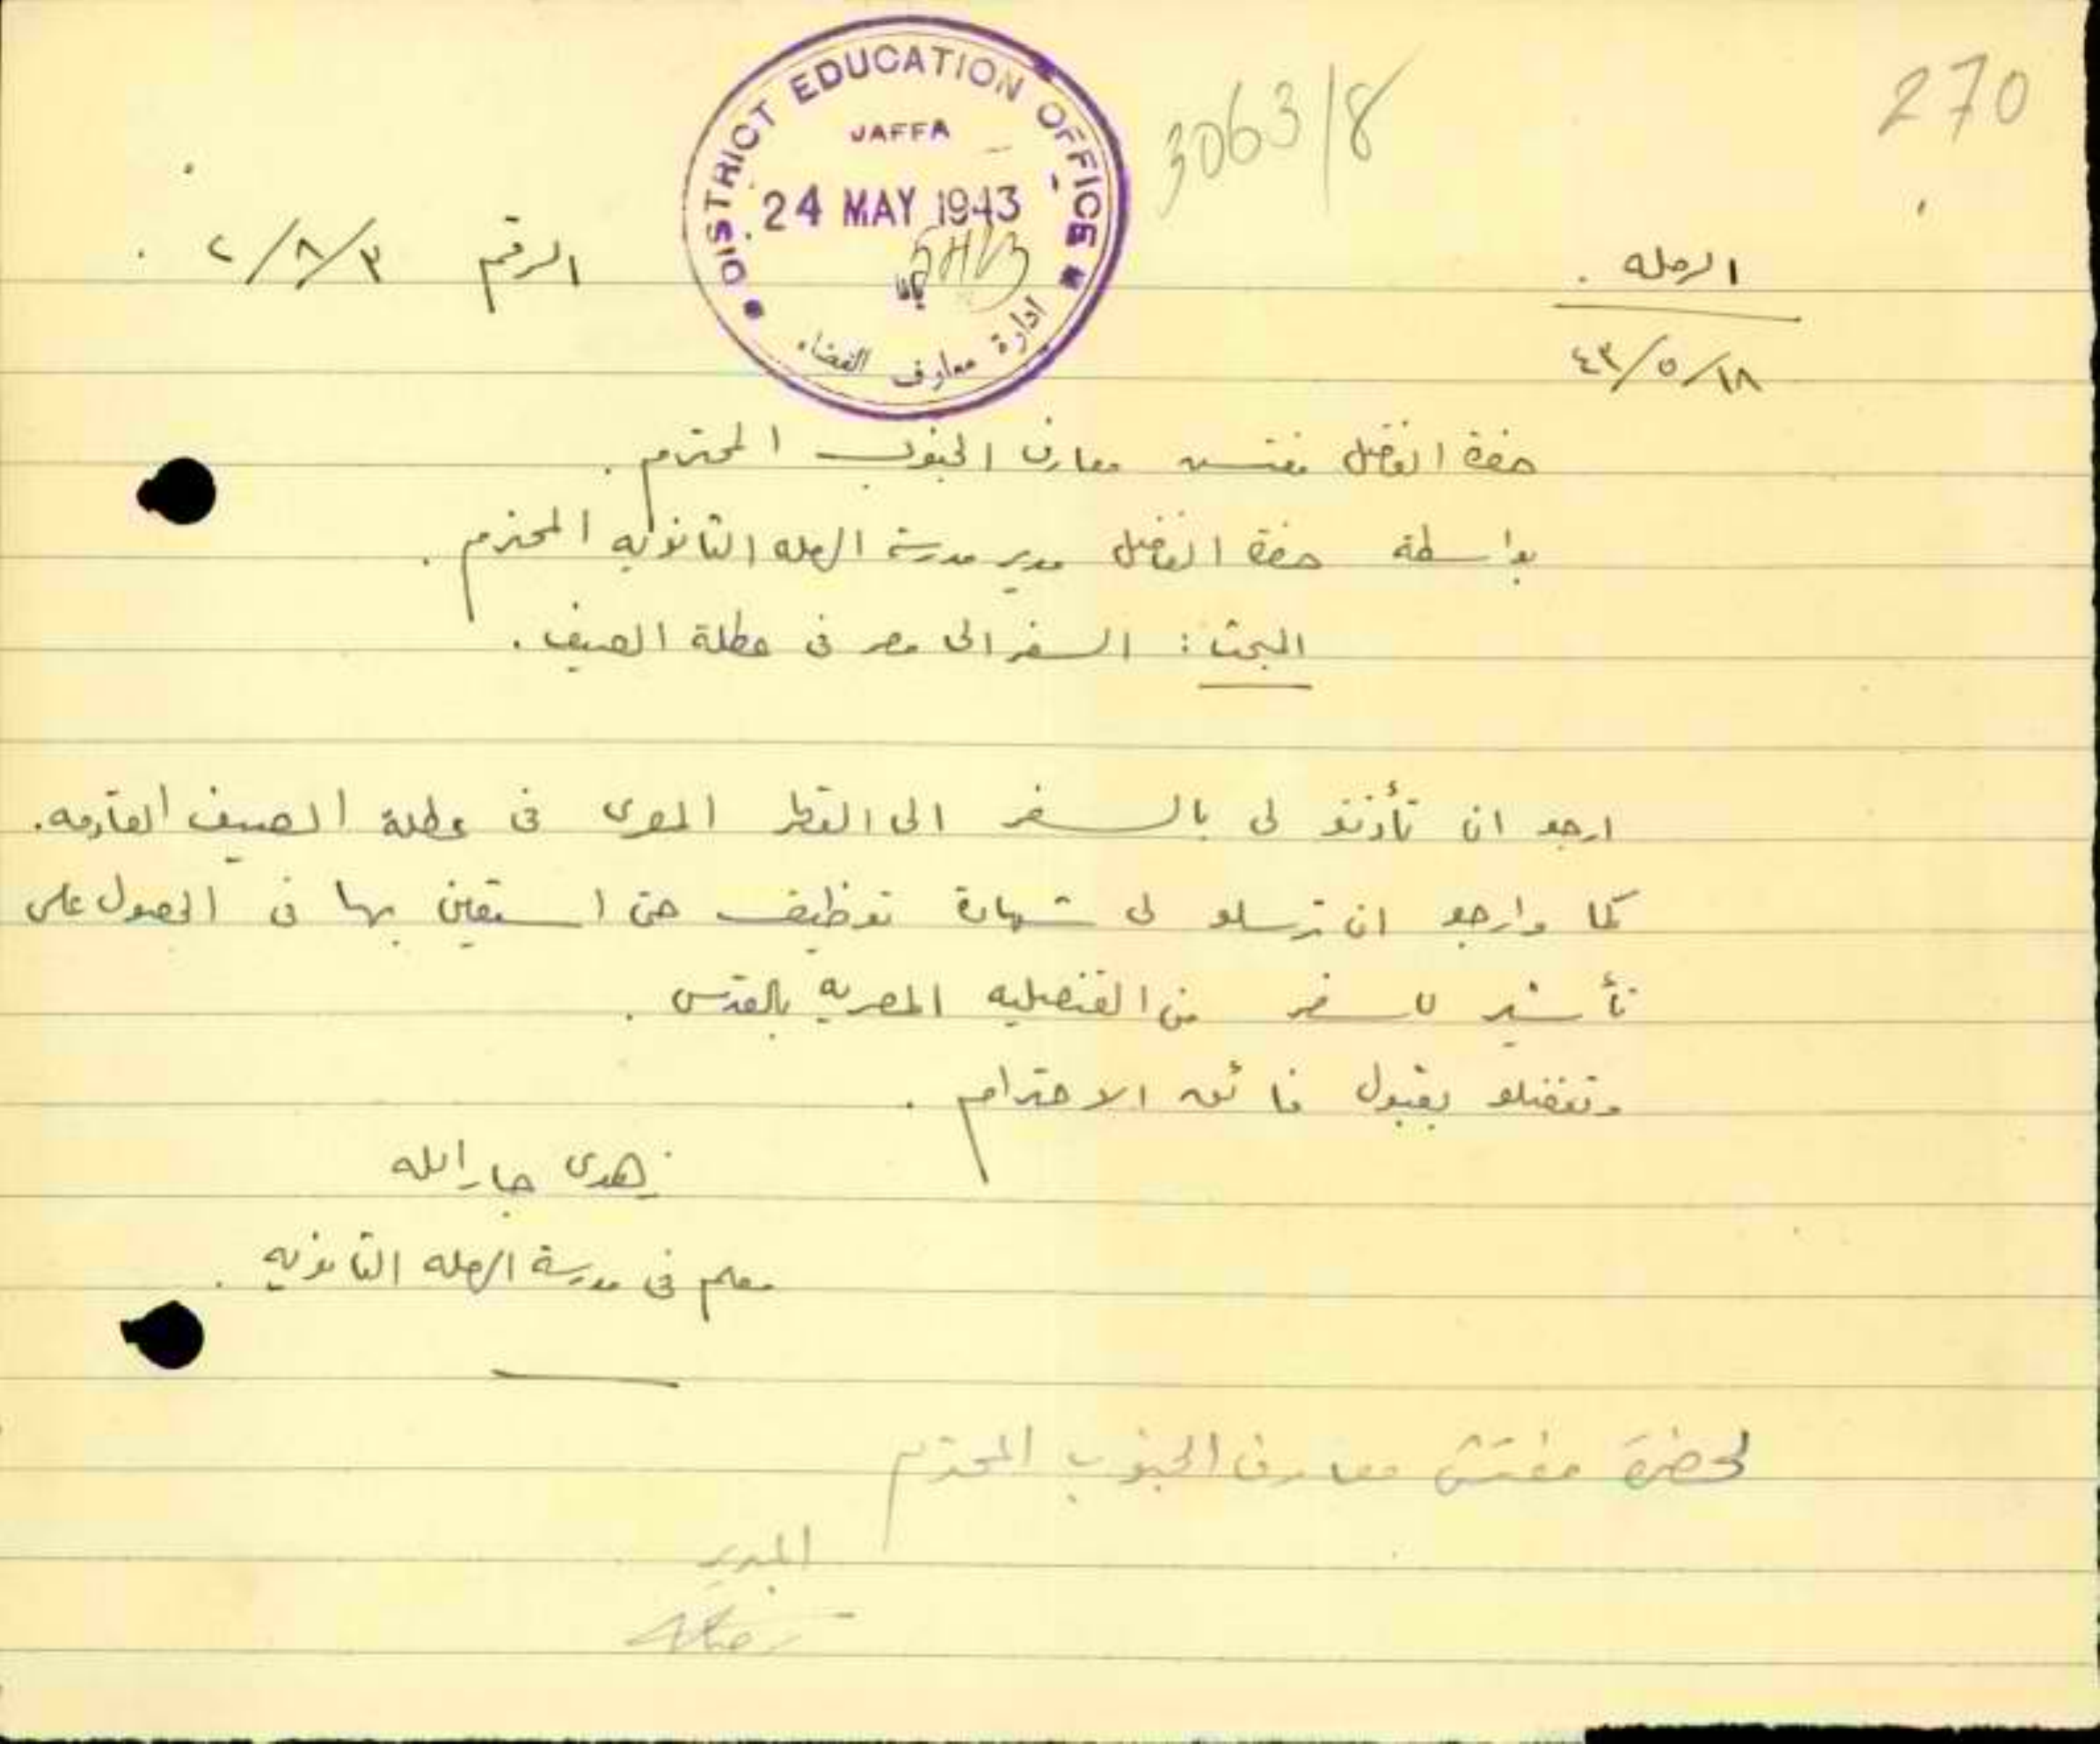 270
3063/8
DISTRICT EDUCATION OFFICE
JAFFA
24 MAY 1943
ادارة معارف القضاء
الرمله .
١٨/٥/٤٣
الرقم ٣/٨/٢ .
حضرة الفاضل مفتش معارف الجنوب المحترم .
بواسطة حضرة الفاضل مدير مدرسة الرمله الثانويه المحترم .
البحث : السفر الى مصر فى عطلة الصيف .
ارجو ان تأذنو لى بالسفر الى القطر المصرى فى عطلة الصيف القادمه .
كما وارجو ان ترسلو لى شهادة توظيف حتى استعين بها فى الحصول على
تأشير للسفر من القنصليه المصريه بالقدس .
وتفضلو بقبول فائق الاحترام .
زهدى جارالله
معلم فى مدرسة الرمله الثانويه .
لحضرة مفتش معارف الجنوب المحترم
المدير